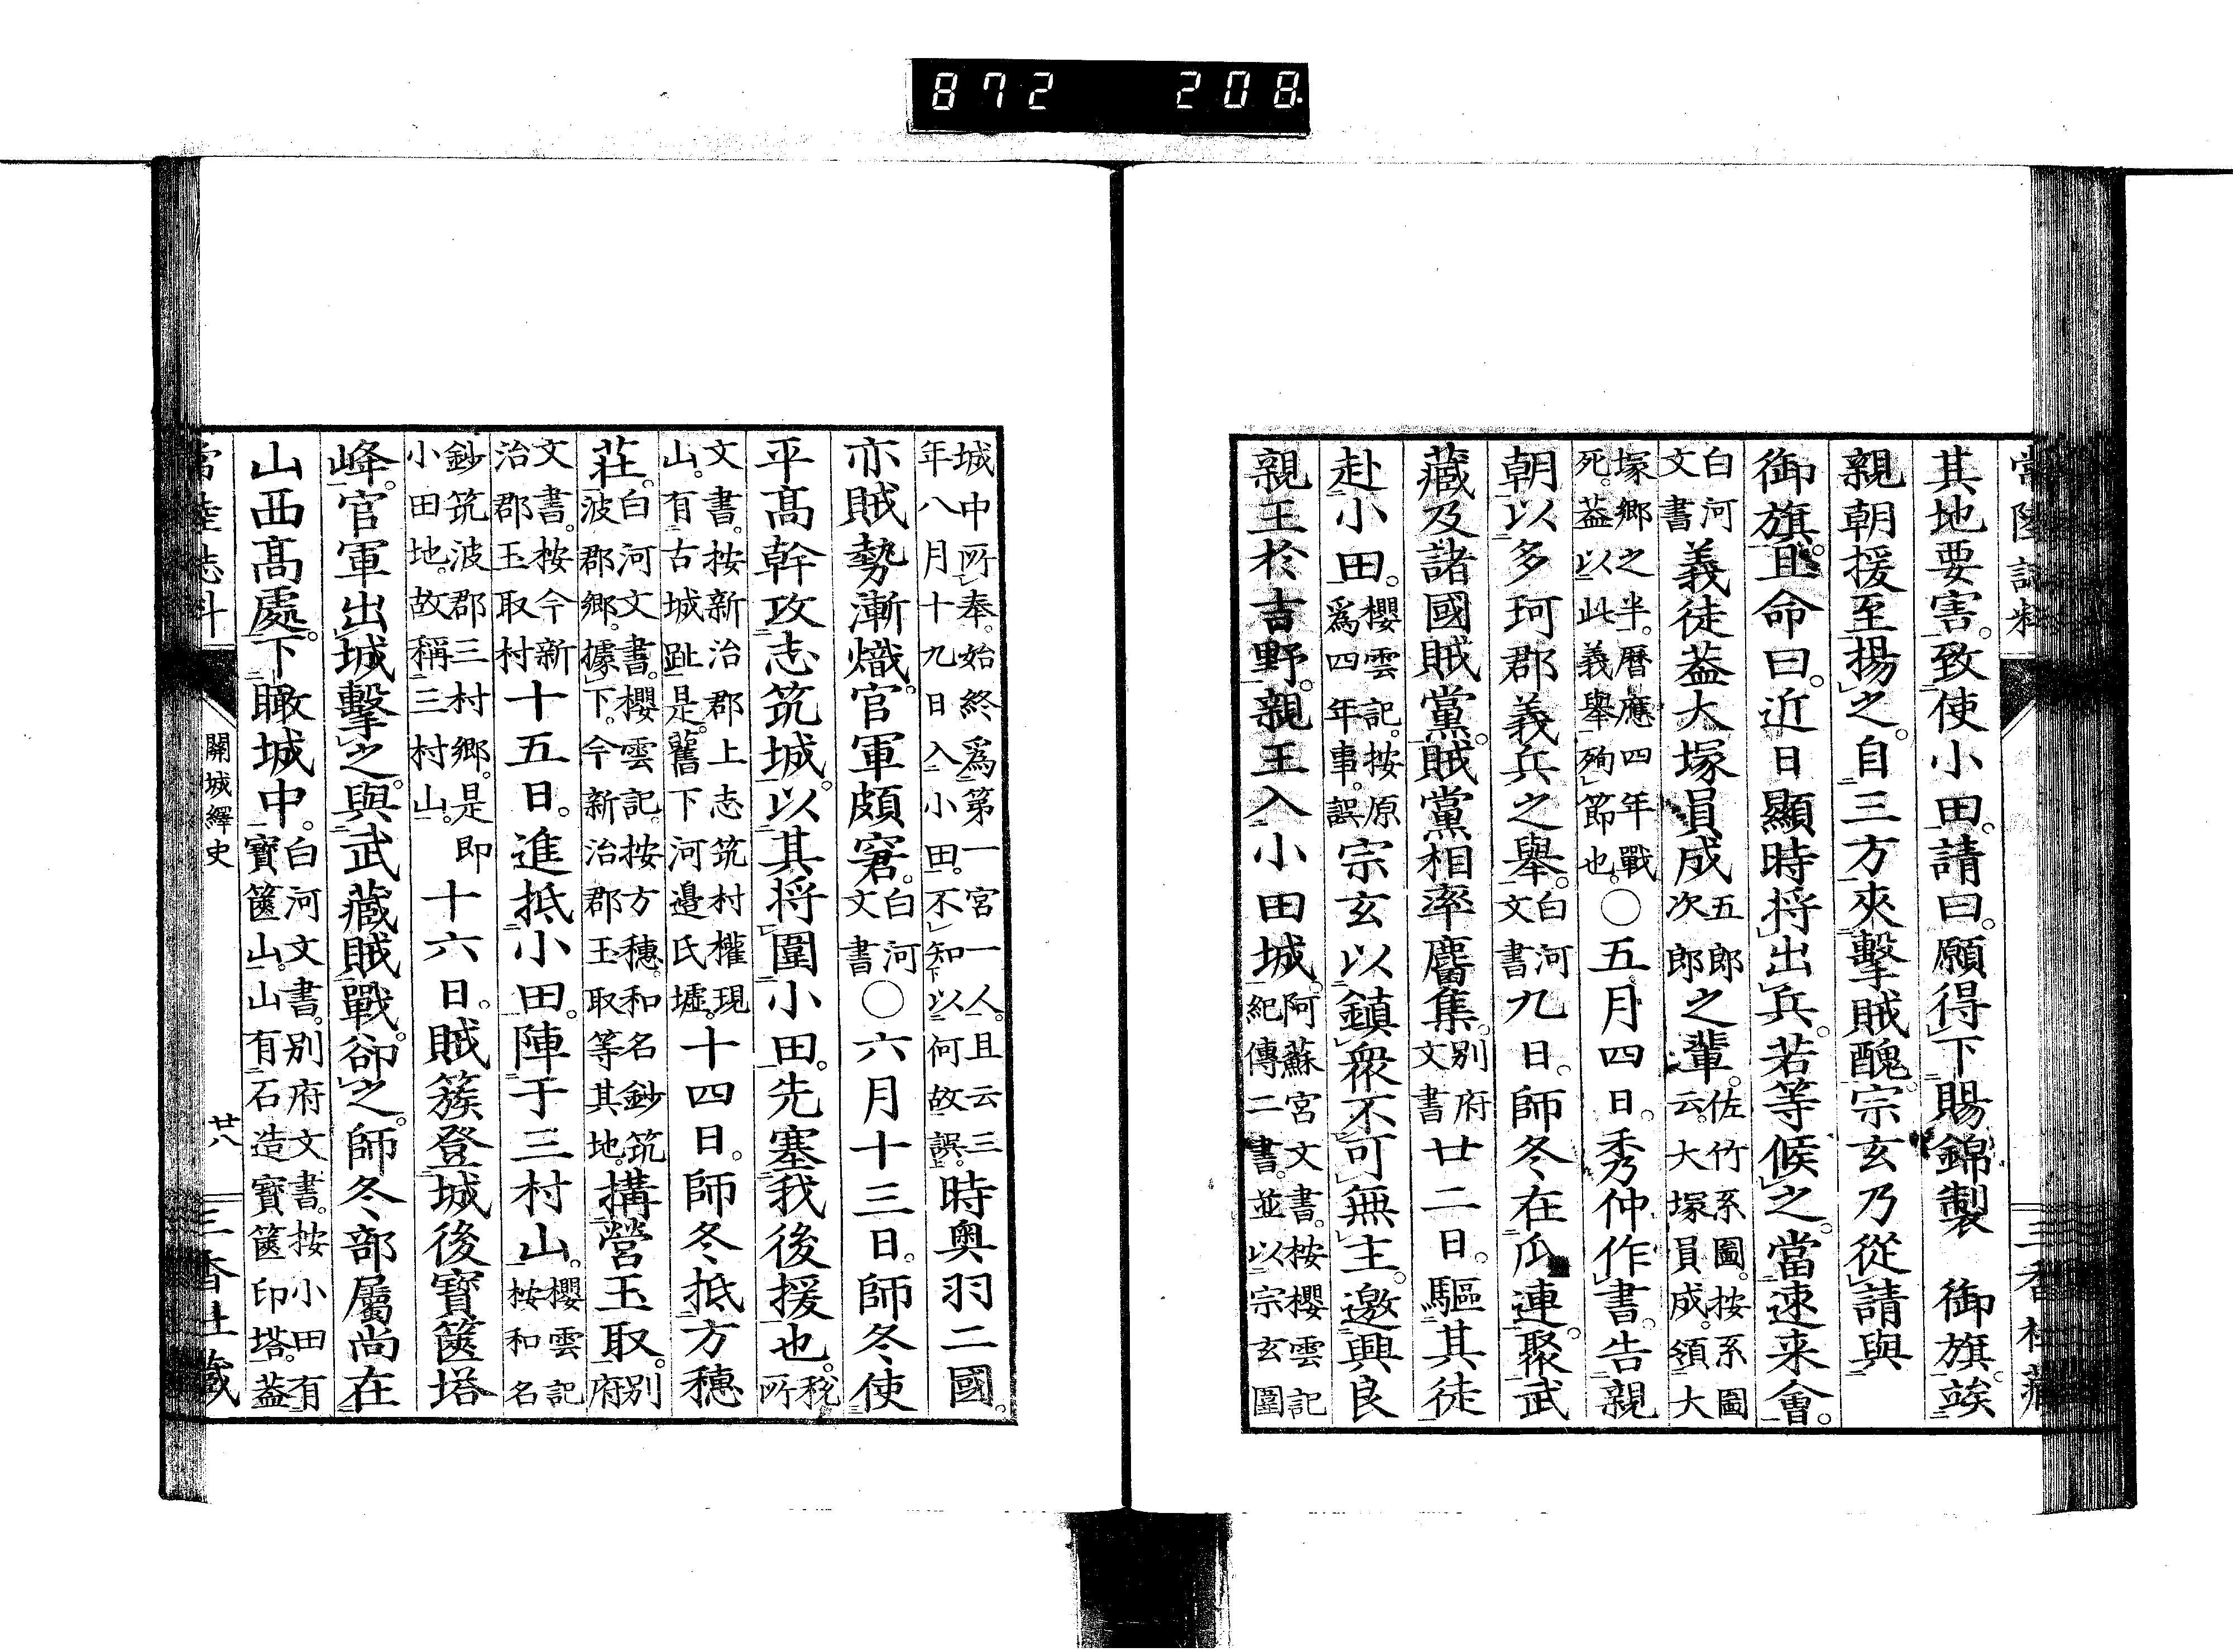 872 208
其地要害。致使小田。請曰。願得下賜錦製　御旗。竢
親朝援至揚之。自三方夾擊賊醜。宗玄乃從請與
御旗。且命曰。近日顯時将出兵。若等候之。當速来會。
白河
文書
義徒葢大塚員成
五郎
次郎
之輩。
佐竹系圖。按系圖
云。大塚員成。領大
塚鄉之半。曆應四年戰
死。葢以此義舉殉節也。
〇五月四日。秀仲作書。告親
朝以多珂郡義兵之舉。
白河
文書
九日。師冬在瓜連。聚武
藏及諸國賊黨。賊黨相率麕集。
別府
文書
廿二日。驅其徒
赴小田。
櫻雲記。按原
爲四年事。誤
宗玄以鎮衆不可無主。邀興良
親王於吉野。親王入小田城。
阿蘇宮文書。按櫻雲記
紀傳二書。並以宗玄圍
城中所奉。始終爲第一宮一人。且云三
年八月十九日入小田。不知以何故誤。
時奥羽二國。
亦賊勢漸熾。官軍頗窘。
白河
文書
〇六月十三日。師冬使
平髙幹攻志筑城。以其将圍小田。先塞我後援也。
税
所
文書。按新治郡上志筑村權現
山。有古城趾是。舊下河邉氏墟。
十四日。師冬抵方穗
荘。
白河文書。櫻雲記。按方穗。和名鈔筑
波郡鄉。據下。今新治郡玉取等其地。
搆營玉取。
別
府
文書。按今新
治郡玉取村
十五日。進抵小田。陣于三村山。
櫻雲記
按和名
鈔筑波郡三村鄉。是即
小田地。故稱三村山。
十六日。賊簇登城後寶篋塔
峰。官軍出城擊之。與武藏賊戰。卻之。師冬部屬尚在
山西髙處。下瞰城中。
白河文書。別府文書。按小田有
寶篋山。山有石造寳篋印塔。葢
關城繹史
廿八